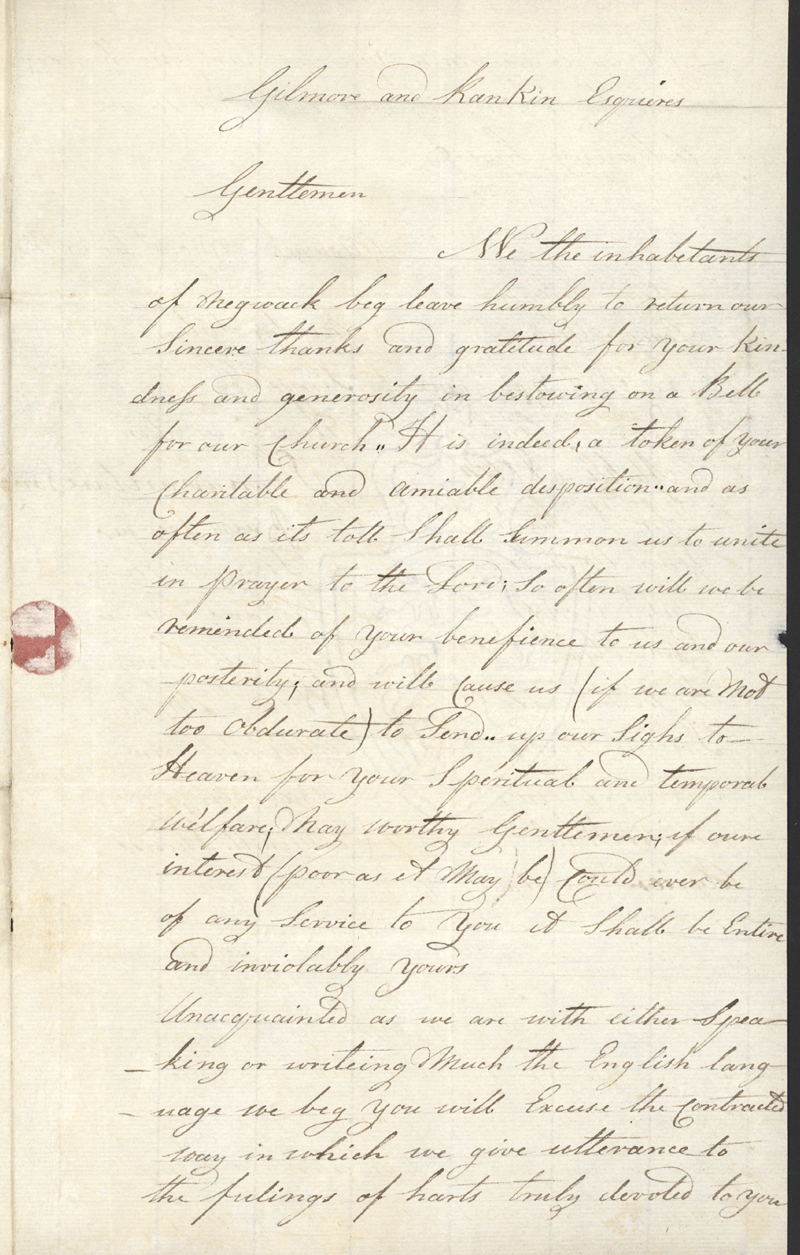 Gilmore and Rankin Esquires
Gentlemen
We the inhabetants
of Negwack beg leave humbly to return our
Sincere thanks and gratitude for your kin-
dness and generosity in bestowing on a Bell
for our Church„ It is indeed, a token of your
Charitable and amiable desposition„ and as
often as its toll Shall Summon us to unite
in Prayer to the Lord; So often will we be
reminded of your benefience to us and our
posterity; and will Cause us (if we are Not
too Obdurate) to Send„ up our Sighs to
Heaven for your Speritual and temporal
welfare; Nay worthy Gentlemen; if oure
interest (poor as it May be) Could ever be
of any Service to You it Shall be Entire
and inviolably yours
Unacquainted as we are with either Spea-
-king or writeing Much the English lang
-uage we beg You will Excuse the Contracted
way in which we give utterance to
the fulings of harts truly devoted to you